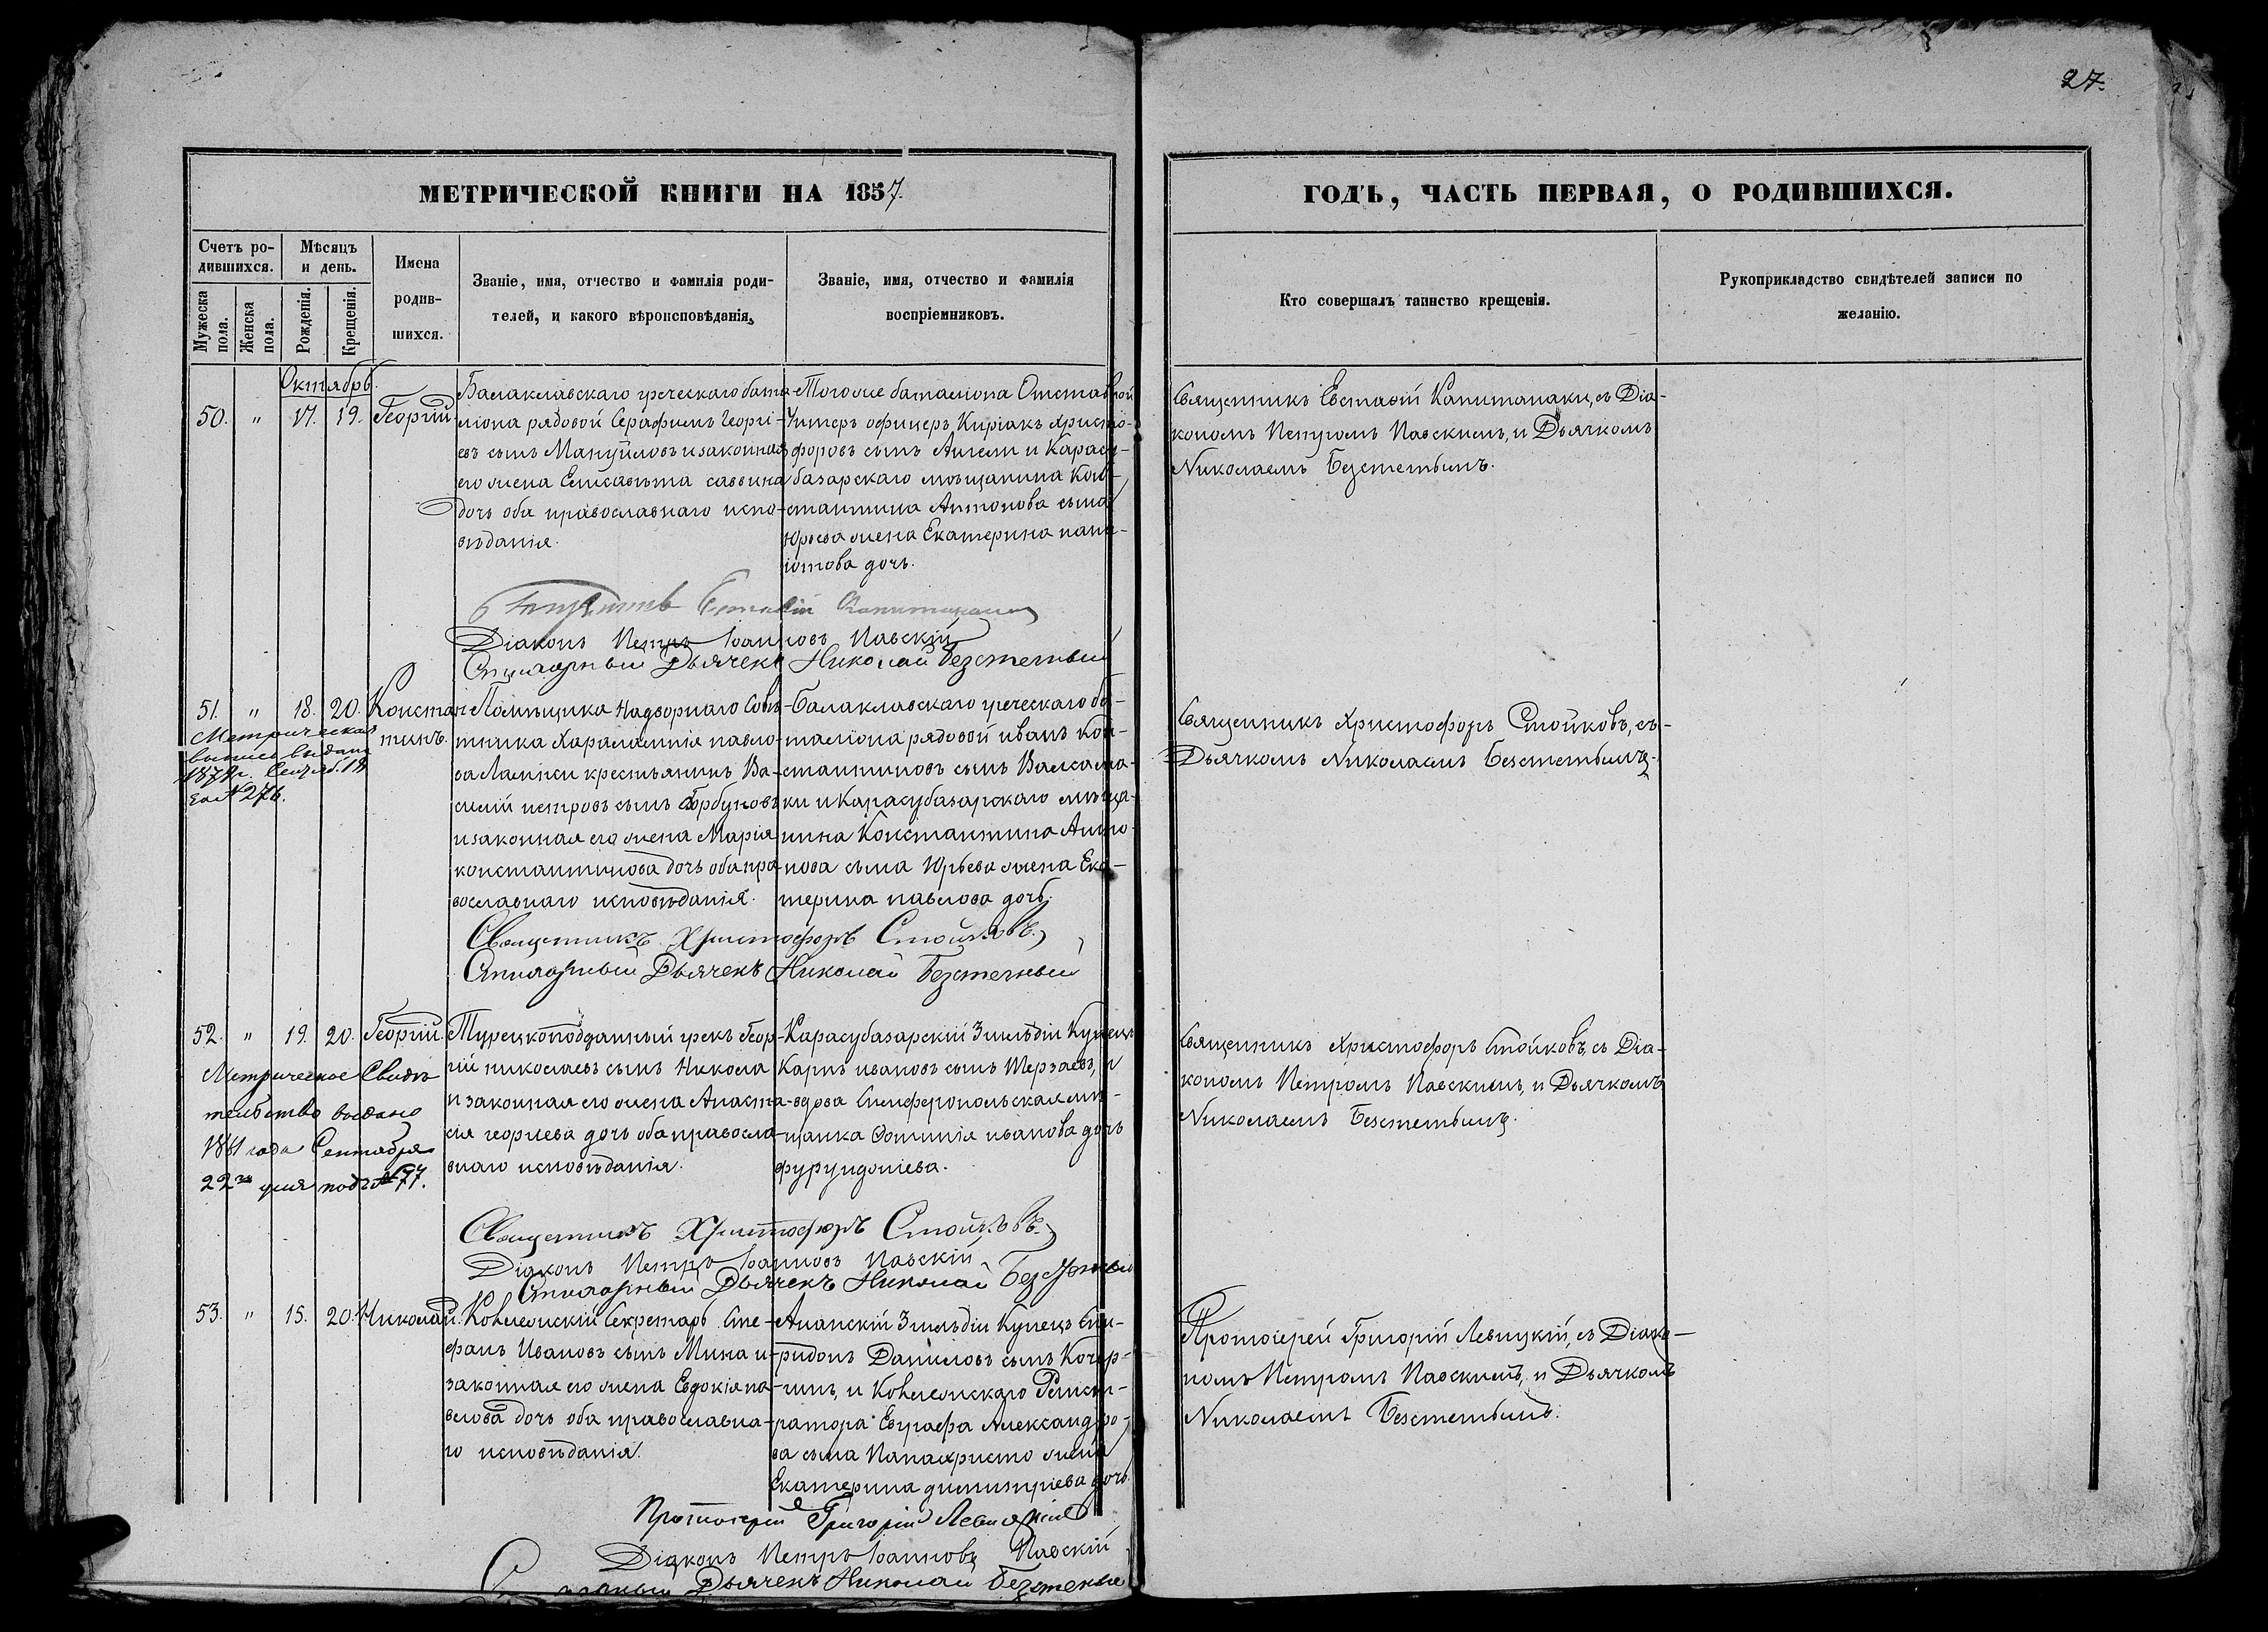 27.
МЕТРИЧЕСКОЙ КНИГИ НА 1857.
Счетъ ро-
дившихся.
Мѣсяцъ
и день.
Мужеска
пола.
Женска
пола.
Рожденія.
Крещенія.
Имена
родив-
шихся.
Званіе, имя, отчество и фамилія роди-
телей, и какого вѣроисповѣданія.
Званіе, имя, отчество и фамилія
воспріемниковъ.
ГОДЪ, ЧАСТЬ ПЕРВАЯ, О РОДИВШИХСЯ.
Кто совершалъ таинство крещенія.
Рукоприкладство свидѣтелей записи по
желанію.
Октябрь.
50. " 17. 19. Георгій
Балаклавскаго греческаго бата-
ліона рядовой Серафимъ Георгі-
евъ сынъ Мануйловъ и законная
его жена Елисавѣта саввина
дочь оба православнаго испо-
вѣданія.
Тогоже баталіона Отставной
Унтеръ офицеръ Киріакъ Христо-
форовъ сынъ Ангели и Карасу-
базарскаго мѣщанина Кон-
стантина Антонова сына
Юрьева жена Екатерина пана-
іотова дочь.
Священникъ Евстафій Капитанаки, съ Діа-
кономъ Петромъ Павскимъ, и Дьячкомъ
Николаемъ Безсметнымъ.
Діаконъ Петръ Іоанновъ Павскій
Дьячекъ Николай Безсметный
51. " 18. 20. Констан-
тинъ.
Метрическая
выпись выдана
1872г. Сентяб. 18
за № 276.
Помѣщика Надворнаго Совѣ-
тника Харалампія павло-
ва Лампси крестьянинъ Ва-
силій петровъ сынъ Горбуновъ
и законная его жена Марія
константинова дочь оба пра-
вославнаго исповѣданія.
Балаклавскаго греческаго ба-
таліона рядовой иванъ кон-
стантиновъ сынъ Валсама-
ки и Карасубазарскаго мѣща-
нина Константина Анто-
нова сына Юрьева жена Ека-
терина павлова дочь.
Священникъ Христофоръ Стойковъ, съ
Дьячкомъ Николаемъ Безсметнымъ.
Священникъ Христофоръ Стойковъ.
Дьячекъ Николай Безсметный
52. " 19. 20. Георгій.
Метрическое Свидѣ
тельство выдано
1861 года Сентября
22го дня подъ № 77.
Турецкоподданный грекъ Геор-
гій николаевъ сынъ Никола
и законная его жена Анаста-
сія георгіева дочь оба правосла-
внаго исповѣданія.
Карасубазарскій 3 гильдіи Купецъ
Карпъ ивановъ сынъ Терзаевъ, и
вдова Симферопольская мѣ-
щанка Фотинія иванова дочь
фурунджіева.
Священникъ Христофоръ Стойковъ, съ Діа-
кономъ Петромъ Павскимъ, и Дьячкомъ
Николаемъ Безсметнымъ.
Священникъ Христофоръ Стойковъ.
Діаконъ Петръ Іоанновъ Павскій
Дьячекъ Николай Безсметный
53. " 15. 20. Николай.
Колежскій Секретарь Сте-
фанъ Ивановъ сынъ Мина и
законная его жена Евдокія па-
влова дочь оба православна-
го исповѣданія.
Анапскій 3 гильдіи Купецъ Спи-
ридонъ Даниловъ сынъ Кочер-
гинъ, и Колежскаго Регист-
ратора Евграфа Александро-
ва сына Папахристо жена
Екатерина димитріева дочь.
Протоіерей Григорій Левицкій, съ Діако-
номъ Петромъ Павскимъ, и Дьячкомъ
Николаемъ Безсметнымъ.
Протоіерей Григорій Левицкій
Діаконъ Петръ Іоанновъ Павскій
Дьячекъ Николай Безсметный